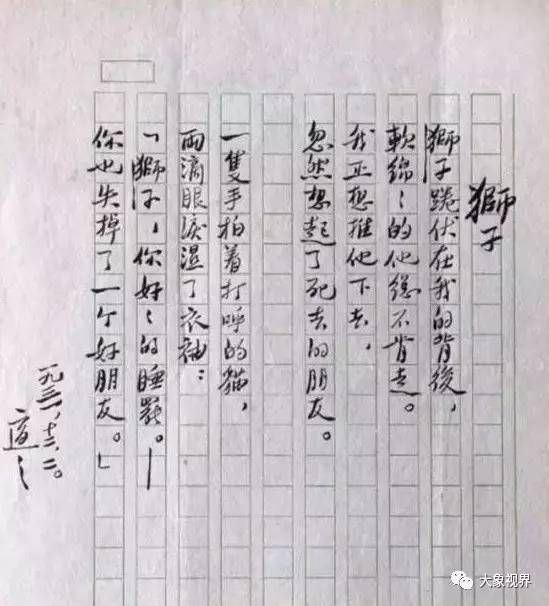 獅子
獅子踡伏在我的背後，
軟綿ミ的他總不肯走。
我正想推他下去，
忽然想起了死去的朋友。
一隻手拍着打呼的貓，
兩滴眼淚濕了衣袖：
「獅子，你好ミ的睡罷。—
你也失掉了一个好朋友。」
一九三一，十二，二。
適之
大象视界